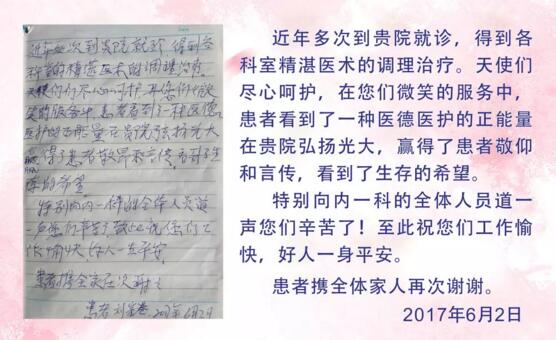 近年多次到贵院就诊 得到各
科室的精湛医术的调理治疗。
天使们尽心呵护，在您们微
笑的服务中，患者看到了一种医德
医护的正能量在贵院弘扬光大
赢得了患者敬仰和言传，看到了生
存的希望
特别向内一科的全体人员道
一声您们辛苦了！至此祝您们工
作愉快，好人一生平安。
患者携全家再次谢谢
患者 刘 2017年6月2日
近年多次到贵院就诊，得到各
科室精湛医术的调理治疗。天使们
尽心呵护，在您们微笑的服务中，
患者看到了一种医德医护的正能量
在贵院弘扬光大，赢得了患者敬仰
和言传，看到了生存的希望。
特别向内一科的全体人员道一
声您们辛苦了！至此祝您们工作愉
快，好人一身平安。
患者携全体家人再次谢谢。
2017年6月2日